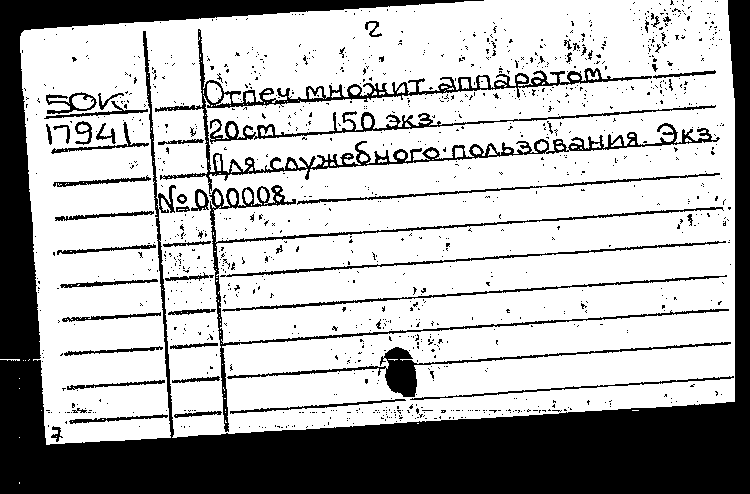 2
50К Отпеч. множит. аппаратом.
17941 20см. 150 экз.
Для служебного пользования. Экз.
№000008.
7